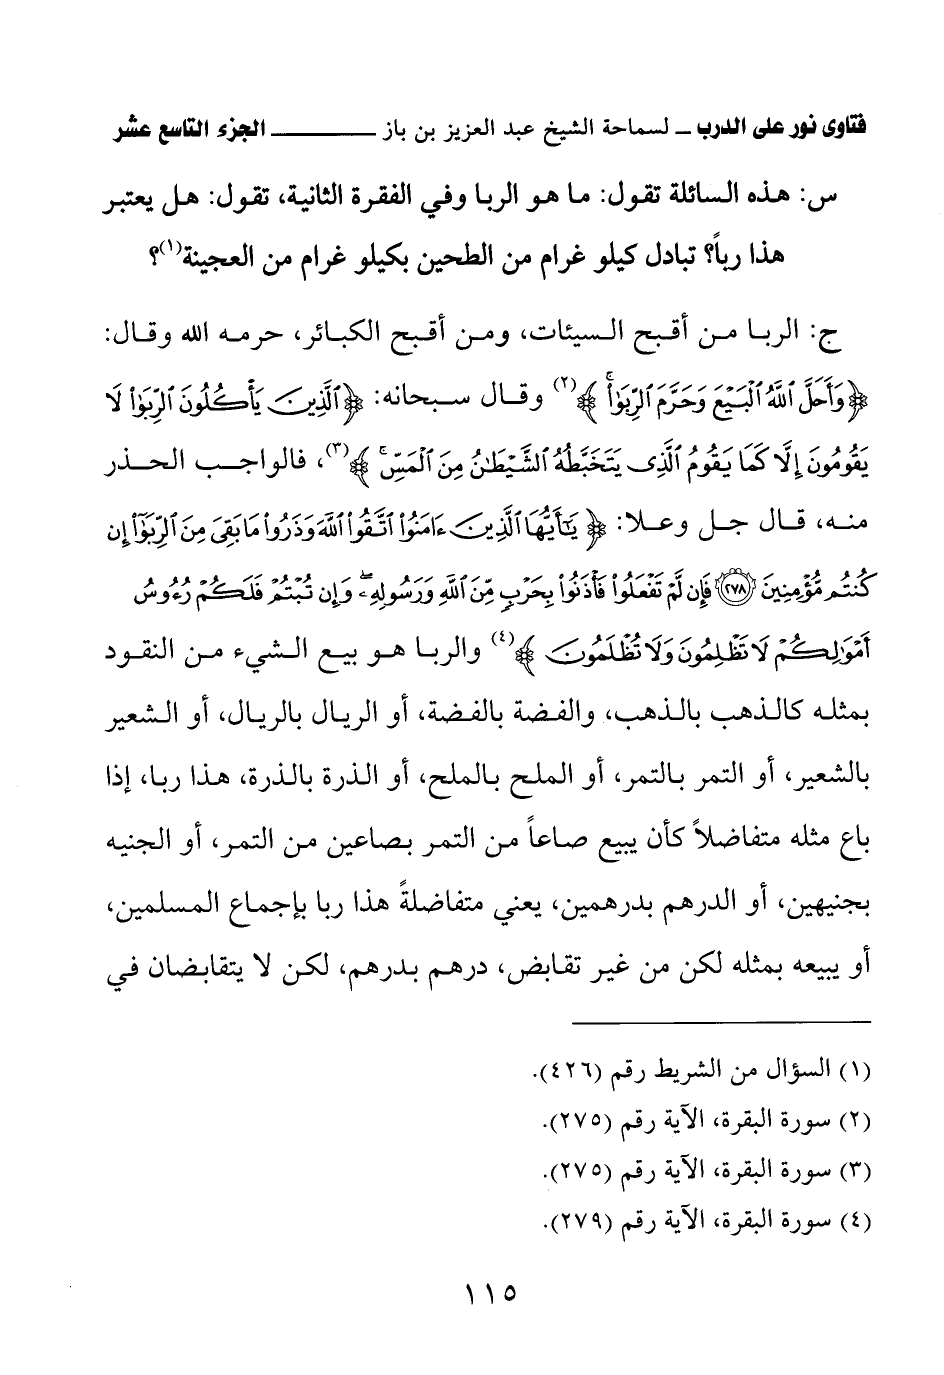 فتاوى نور على الدرب ـ لسماحة الشيخ عبد العزيز بن باز ـــــــــــــ الجزء التاسع عشر
س: هذه السائلة تقول: ما هو الربا وفي الفقرة الثانية، تقول: هل يعتبر
هذا رباً؟ تبادل كيلو غرام من الطحين بكيلو غرام من العجينة(١)؟
ج: الربا من أقبح السيئات، ومن أقبح الكبائر، حرمه الله وقال:
﴿وَأَحَلَّ ٱللَّهُ ٱلۡبَيۡعَ وَحَرَّمَ ٱلرِّبَوٰاْۚ﴾(٢) وقال سبحانه: ﴿ٱلَّذِينَ يَأۡكُلُونَ ٱلرِّبَوٰاْ لَا
يَقُومُونَ إِلَّا كَمَا يَقُومُ ٱلَّذِي يَتَخَبَّطُهُ ٱلشَّيۡطَٰنُ مِنَ ٱلۡمَسِّۚ﴾(٣)، فالواجب الحذر
منه، قال جل وعلا: ﴿يَٰٓأَيُّهَا ٱلَّذِينَ ءَامَنُواْ ٱتَّقُواْ ٱللَّهَ وَذَرُواْ مَا بَقِيَ مِنَ ٱلرِّبَوٰٓاْ إِن
كُنتُم مُّؤۡمِنِينَ ٢٧٨ فَإِن لَّمۡ تَفۡعَلُواْ فَأۡذَنُواْ بِحَرۡبٖ مِّنَ ٱللَّهِ وَرَسُولِهِۦۖ وَإِن تُبۡتُمۡ فَلَكُمۡ رُءُوسُ
أَمۡوَٰلِكُمۡ لَا تَظۡلِمُونَ وَلَا تُظۡلَمُونَ﴾(٤) والربا هو بيع الشيء من النقود
بمثله كالذهب بالذهب، والفضة بالفضة، أو الريال بالريال، أو الشعير
بالشعير، أو التمر بالتمر، أو الملح بالملح، أو الذرة بالذرة، هذا ربا، إذا
باع مثله متفاضلاً كأن يبيع صاعاً من التمر بصاعين من التمر، أو الجنيه
بجنيهين، أو الدرهم بدرهمين، يعني متفاضلةً هذا ربا بإجماع المسلمين،
أو يبيعه بمثله لكن من غير تقابض، درهم بدرهم، لكن لا يتقابضان في
(١) السؤال من الشريط رقم (٤٢٦).
(٢) سورة البقرة، الآية رقم (٢٧٥).
(٣) سورة البقرة، الآية رقم (٢٧٥).
(٤) سورة البقرة، الآية رقم (٢٧٩).
١١٥